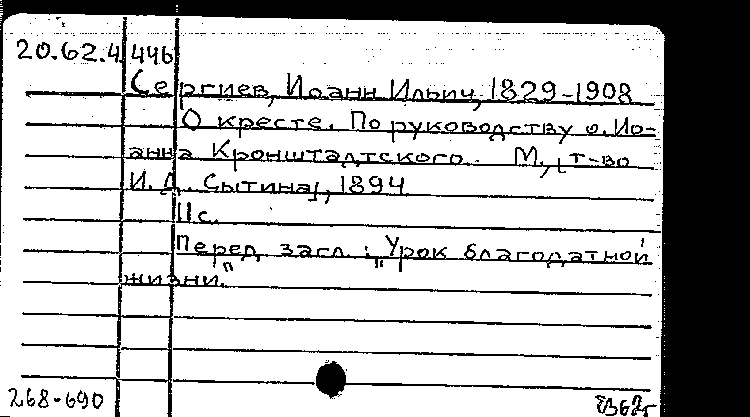 20.62.4 446
Сергиев, Иоанн Ильич, 1829-1908
О кресте. По руководству о. Ио-
анна Кронштадтского. М., [т-во
И. Д. Сытина], 1894
11с.
Перед загл.: "Урок благодатной
жизни."
268-690